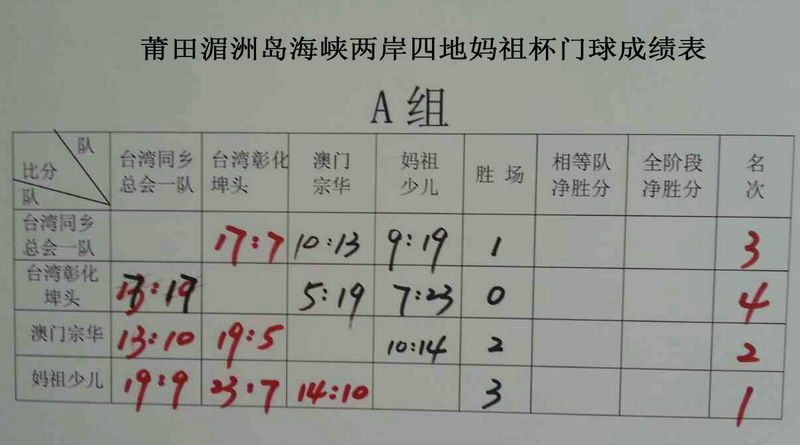 莆田湄洲岛海峡两岸四地妈祖杯门球成绩表
A组
队 比分 队 台湾同乡总会一队 台湾彰化埤头 澳门宗华 妈祖少儿 胜 场 相等队净胜分 全阶段净胜分 名次
台湾同乡总会一队 17:7 10:13 9:19 1 3
台湾彰化埤头 5:19 7:23 0 4
澳门宗华 13:10 19:5 10:14 2 2
妈祖少儿 19:9 23:7 14:10 3 1